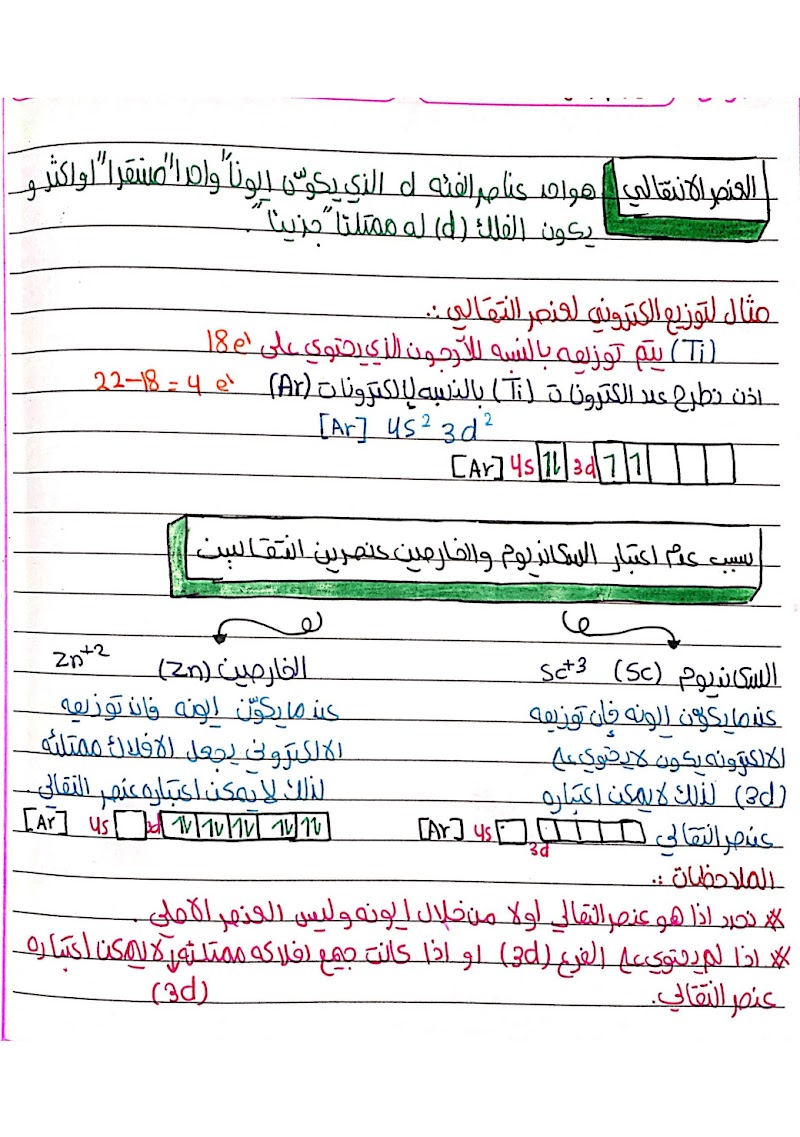 العنصر الانتقالي هو احد عناصر الفئه d الذي يكوّن ايوناً واحداً مستقراً او اكثر و
يكون الفلك (d) له ممتلئاً جزيئاً.
مثال لتوزيع الكتروني لعنصر النتقالي :.
(Ti) يتم توزيعه بالنسبه للآرجون الذي يحتوي على 18e'
اذن نطرح عدد الكترونات (Ti) بالنسبه لإلكترونات (Ar) 22-18=4 e'
[Ar] 4S² 3d²
[Ar] 4s 1l 3d 1 1
سبب عدم اعتبار السكانديوم والخارصين عنصرين النتقاليين
السكانديوم (Sc) Sc+3
عندما يكوّن ايونه فإن توزيعه
الالكترونه يكون لا يحتوي على
(3d) لذلك لا يمكن اعتباره
عنصر النتقالي [Ar] 4s 3d
الخارصين (Zn) Zn+2
عندما يكوّن ايونه فان توزيعه
الالكتروني يجعل الافلاك ممتلئه
لذلك لا يمكن اعتباره عنصر النتقالي
[Ar] 4s 3d 1l 1l 1l 1l 1l
الملاحظات :.
** نحدد اذا هو عنصر النتقالي اولا من خلال ايونه وليس العنصر الاصلي.
** اذا لم يحتوي على الفرع (3d) او اذا كانت جميع افلاكه ممتلئه لا يمكن اعتباره
عنصر النتقالي. (3d)